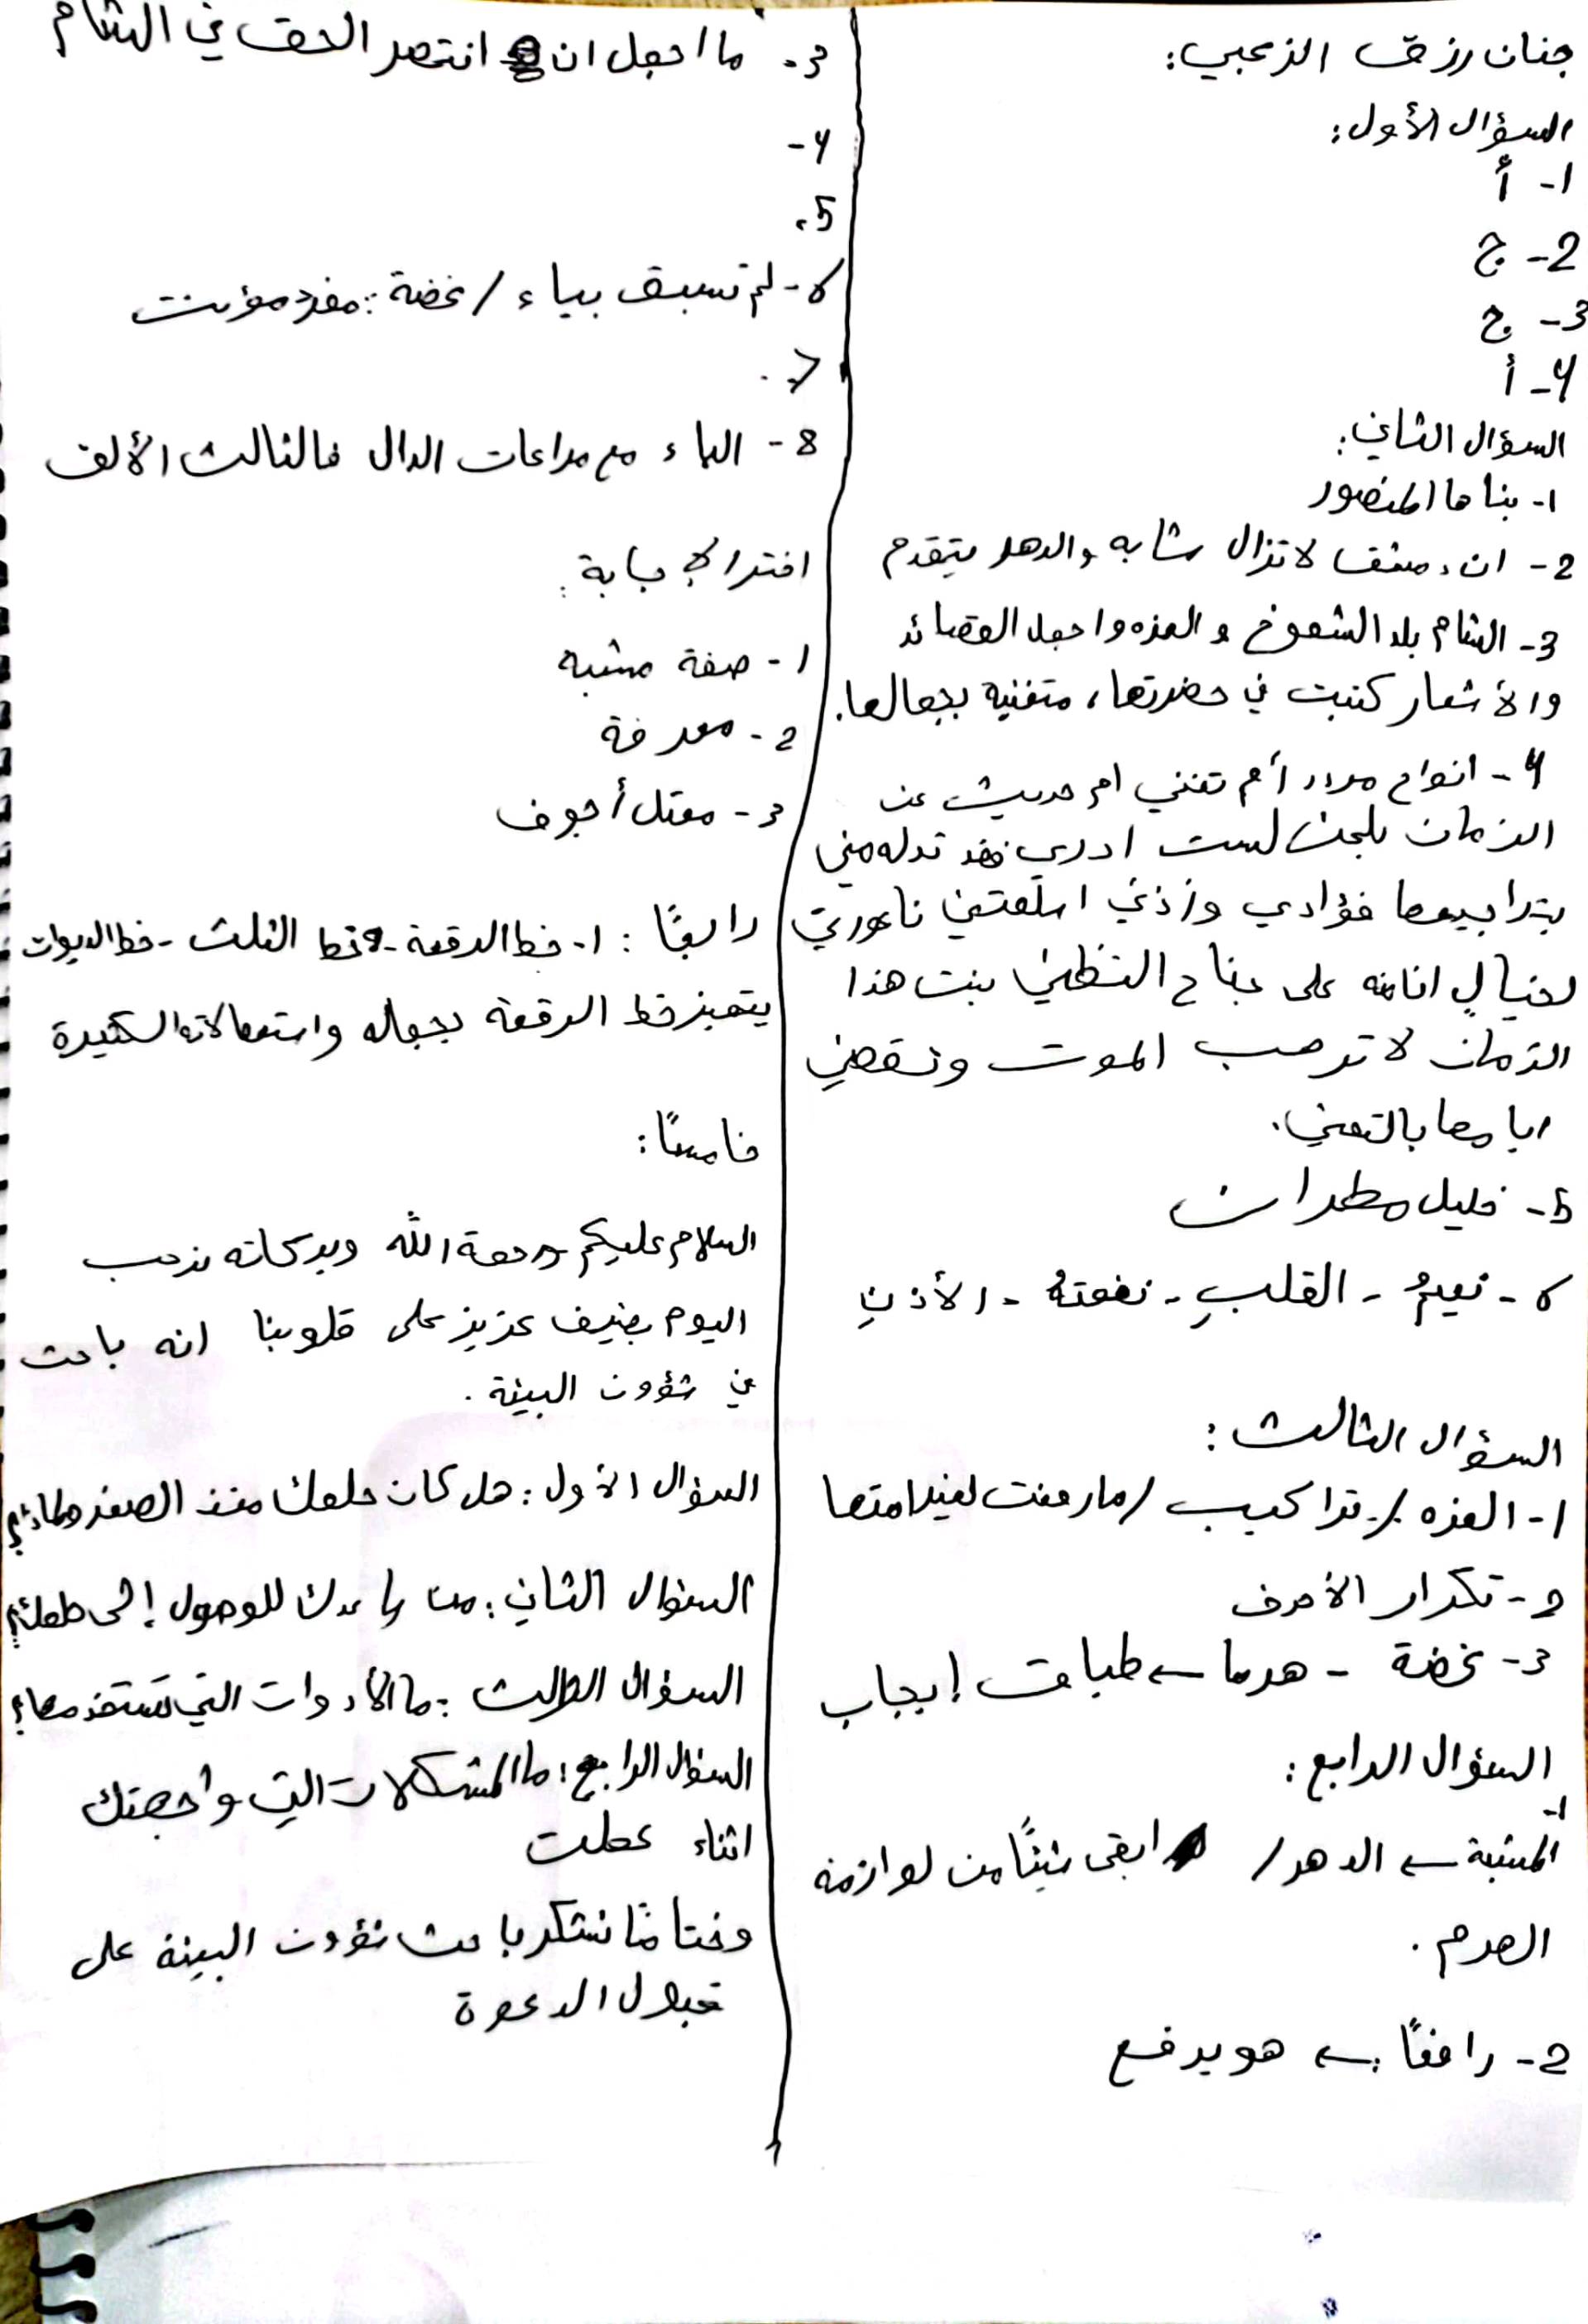 جنان رزق الزعبي:
السؤال الأول:
1- أ
2- ج
3- ج
4- أ
السؤال الثاني:
1- بناها المنصور
2- ان دمشق لا تزال شابه والدهر يتقدم
3- الشام بلد الشموخ و العزه واجمل القصائد
والأشعار كتبت في حضرتها، متغنيه بجمالها.
4- انواح مردد أم تغني ام حديث عن
الزمان بلحن لست ادري فقد تدله مني
بترابيعها فؤادي وأذني اسلمتني ناعورتي
لخيالٍ انا منه على جناح التظني بنت هذا
الزمان لا ترهب الموت وتقضي
ايامها بالتمني.
5- خليل مطران
6- نعيمُ - القلبِ - نغمتهُ - الأذنِ
السؤال الثالث:
1- العزه / تراكيب / مارمنت لغيرامتها
2- تكرار الأحرف
3- نهضة - هرما ← طباق إيجاب
السؤال الرابع:
1-
المشبة ← الدهر / ابقى شيئًا من لوازمه
الهرم.
2- رافعًا ← هو يرفع
3- ما اجمل ان انتصر الحق في الشام
4-
5.
6- لم تسبق بياء / نهضة: مفرد مؤنث
7.
8- الباء مع مراعات الدال فالثالث الألف
اختر الإجابة:
1- صفة مشبه
2- معرفة
3- معتل أجوف
رابعًا: 1- خط الرقعة - وخط الثلث - خط الديوات
يتميز خط الرقعة بجماله واستعمالاته الكثيرة
خامسًا:
السلام عليكم ورحمة الله وبركاته نرحب
اليوم بضيف عزيز على قلوبنا انه باحث
في شؤون البيئة.
السؤال الأول: هل كان حلمك منذ الصغر ولماذا؟
السؤال الثاني: من ساعدك للوصول إلى حلمك؟
السؤال الثالث: ما الأدوات التي تستخدمها؟
السؤال الرابع: ما المشكلات التي واجهتك
اثناء عملت
وختامًا نشكر باحث شؤون البيئة على
قبول الدعوة